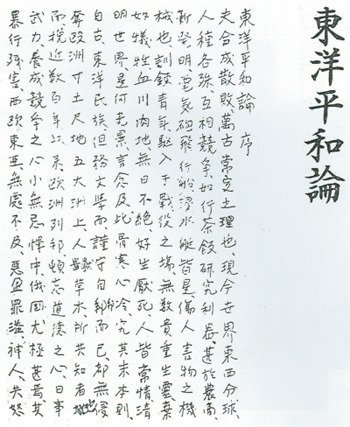 東洋平和論
東洋平和論 序
夫合成散敗萬古常定之理也、現今世界東西分球、
人種各殊、互相競爭、如行茶飯、研究利器、甚於農商、
新發明電氣砲、飛行船、浸水艇、皆是傷人害物之機
械也、訓鍊青年、驅入于戰役之場、無數貴重生靈、棄
如犧牲、血川肉地、無日不絶、好生厭死、人皆常情、清
明世界、是何光景、言念及此、骨寒心冷、究其末本、則
自古東洋民族、但務文學而謹守自邦而已、都無侵
奪歐洲寸土尺地、五大洲上人獸草木、所共知者也、
而挽近數百年以來、歐洲列邦、頓忘道德之心、日事
武力、養成競爭之心、小無忌憚、中俄國尤極甚焉、其
暴行殘害、西歐東亞、無處不及、惡盈罪溢、神人共怒